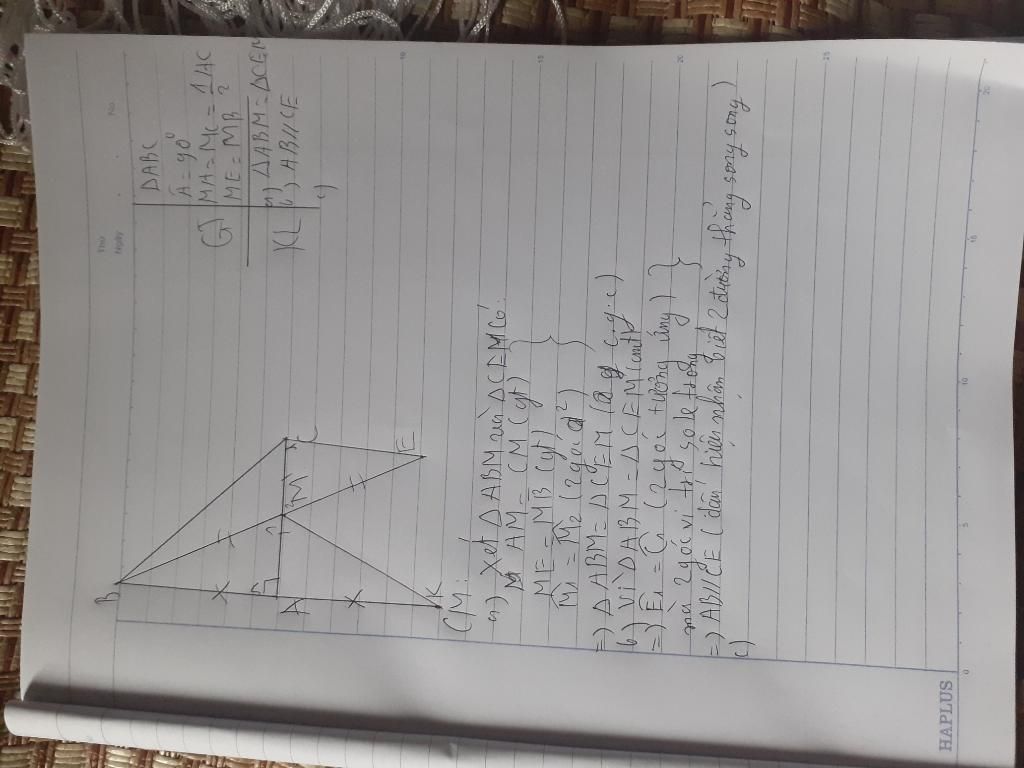 Thứ
Ngày
No.
ΔABC
Â = 90°
GT MA = MC = 1/2 AC
ME = MB
KL a, ΔABM = ΔCEM
b, AB//CE
c,
B
A
M
C
E
K
1
2
CM:
a) Xét ΔABM và ΔCEM Có:
AM = CM (gt)
ME = MB (gt)
M̂1 = M̂2 (2 góc đ²)
=) ΔABM = ΔCEM (c.g.c)
b) Vì ΔABM = ΔCEM (cmt)
=) = Ĉ1 (2 góc tương ứng)
mà 2 góc vị trí so le trong
=) AB//CE (dấu hiệu nhận biết 2 đường thẳng song song)
c)
HAPLUS
0
5
10
15
20
10
15
20
25